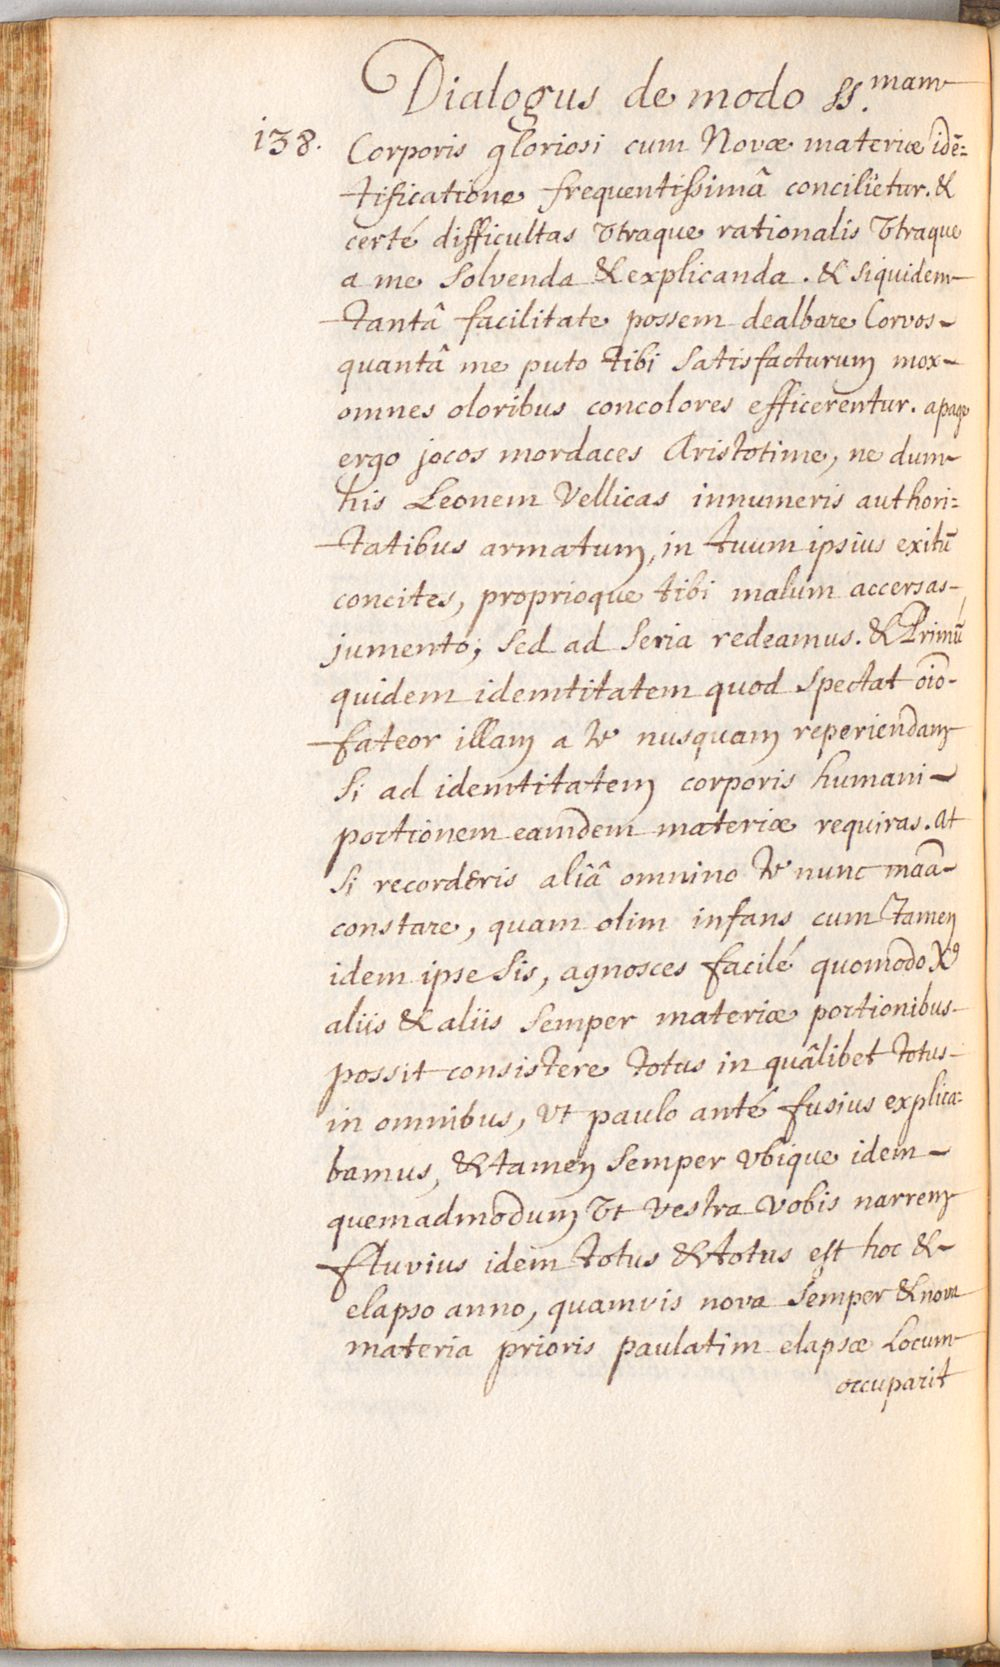 Dialogus de modo SS.mam
138.
Corporis gloriosi cum Novæ materiæ idē=
tificatione frequentissimâ concilietur. &
certé difficultas Vtraque rationalis Vtraque
a me Solvenda & explicanda. & siquidem
tantâ facilitate possem dealbare Corvos
quantâ me puto tibi Satisfacturum mox
omnes oloribus concolores efficerentur. apage
ergo jocos mordaces Aristotime, ne dum
his Leonem Vellicas innumeris authori=
tatibus armatum, in tuum ipsius exitū
concites, proprioque tibi malum accersas
jumento; Sed ad Seria redeamus. & Primū
quidem idemtitatem quod Spectat oīo
fateor illam a te nusquam reperiendam
Si ad idemtitatem corporis humani
portionem eamdem materiæ requiras. at
Si recorderis aliâ omnino te nunc maā
constare, quam olim infans cum tamen
idem ipse Sis, agnosces facilé quomodo X9
aliis & aliis Semper materiæ portionibus
possit consistere totus in quâlibet totus
in omnibus, Vt paulo anté fusius explica=
bamus, & tamen Semper Vbique idem
quemadmodum Vt Vestra Vobis narrem
fluvius idem totus & totus est hoc &
elapso anno, quamvis nova Semper & nova
materia prioris paulatim elapsæ Locum
occuparit